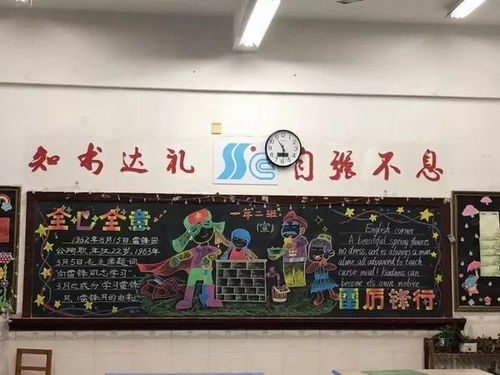 知书达礼
SSjC
自强不息
全心全意
1962年8月15日雷锋因
公殉职,年仅22岁,1963年
3月5日毛主席题词
"向雷锋同志学习"
3月也成为学习雷锋
月(雷锋月的由来)
一年二班
(宣)
English corner
A beautiful spring flowers
no dress, art is always a man
alone, all advanced to teach
curse mad! kindness can
become its own motive
雷厉锋行